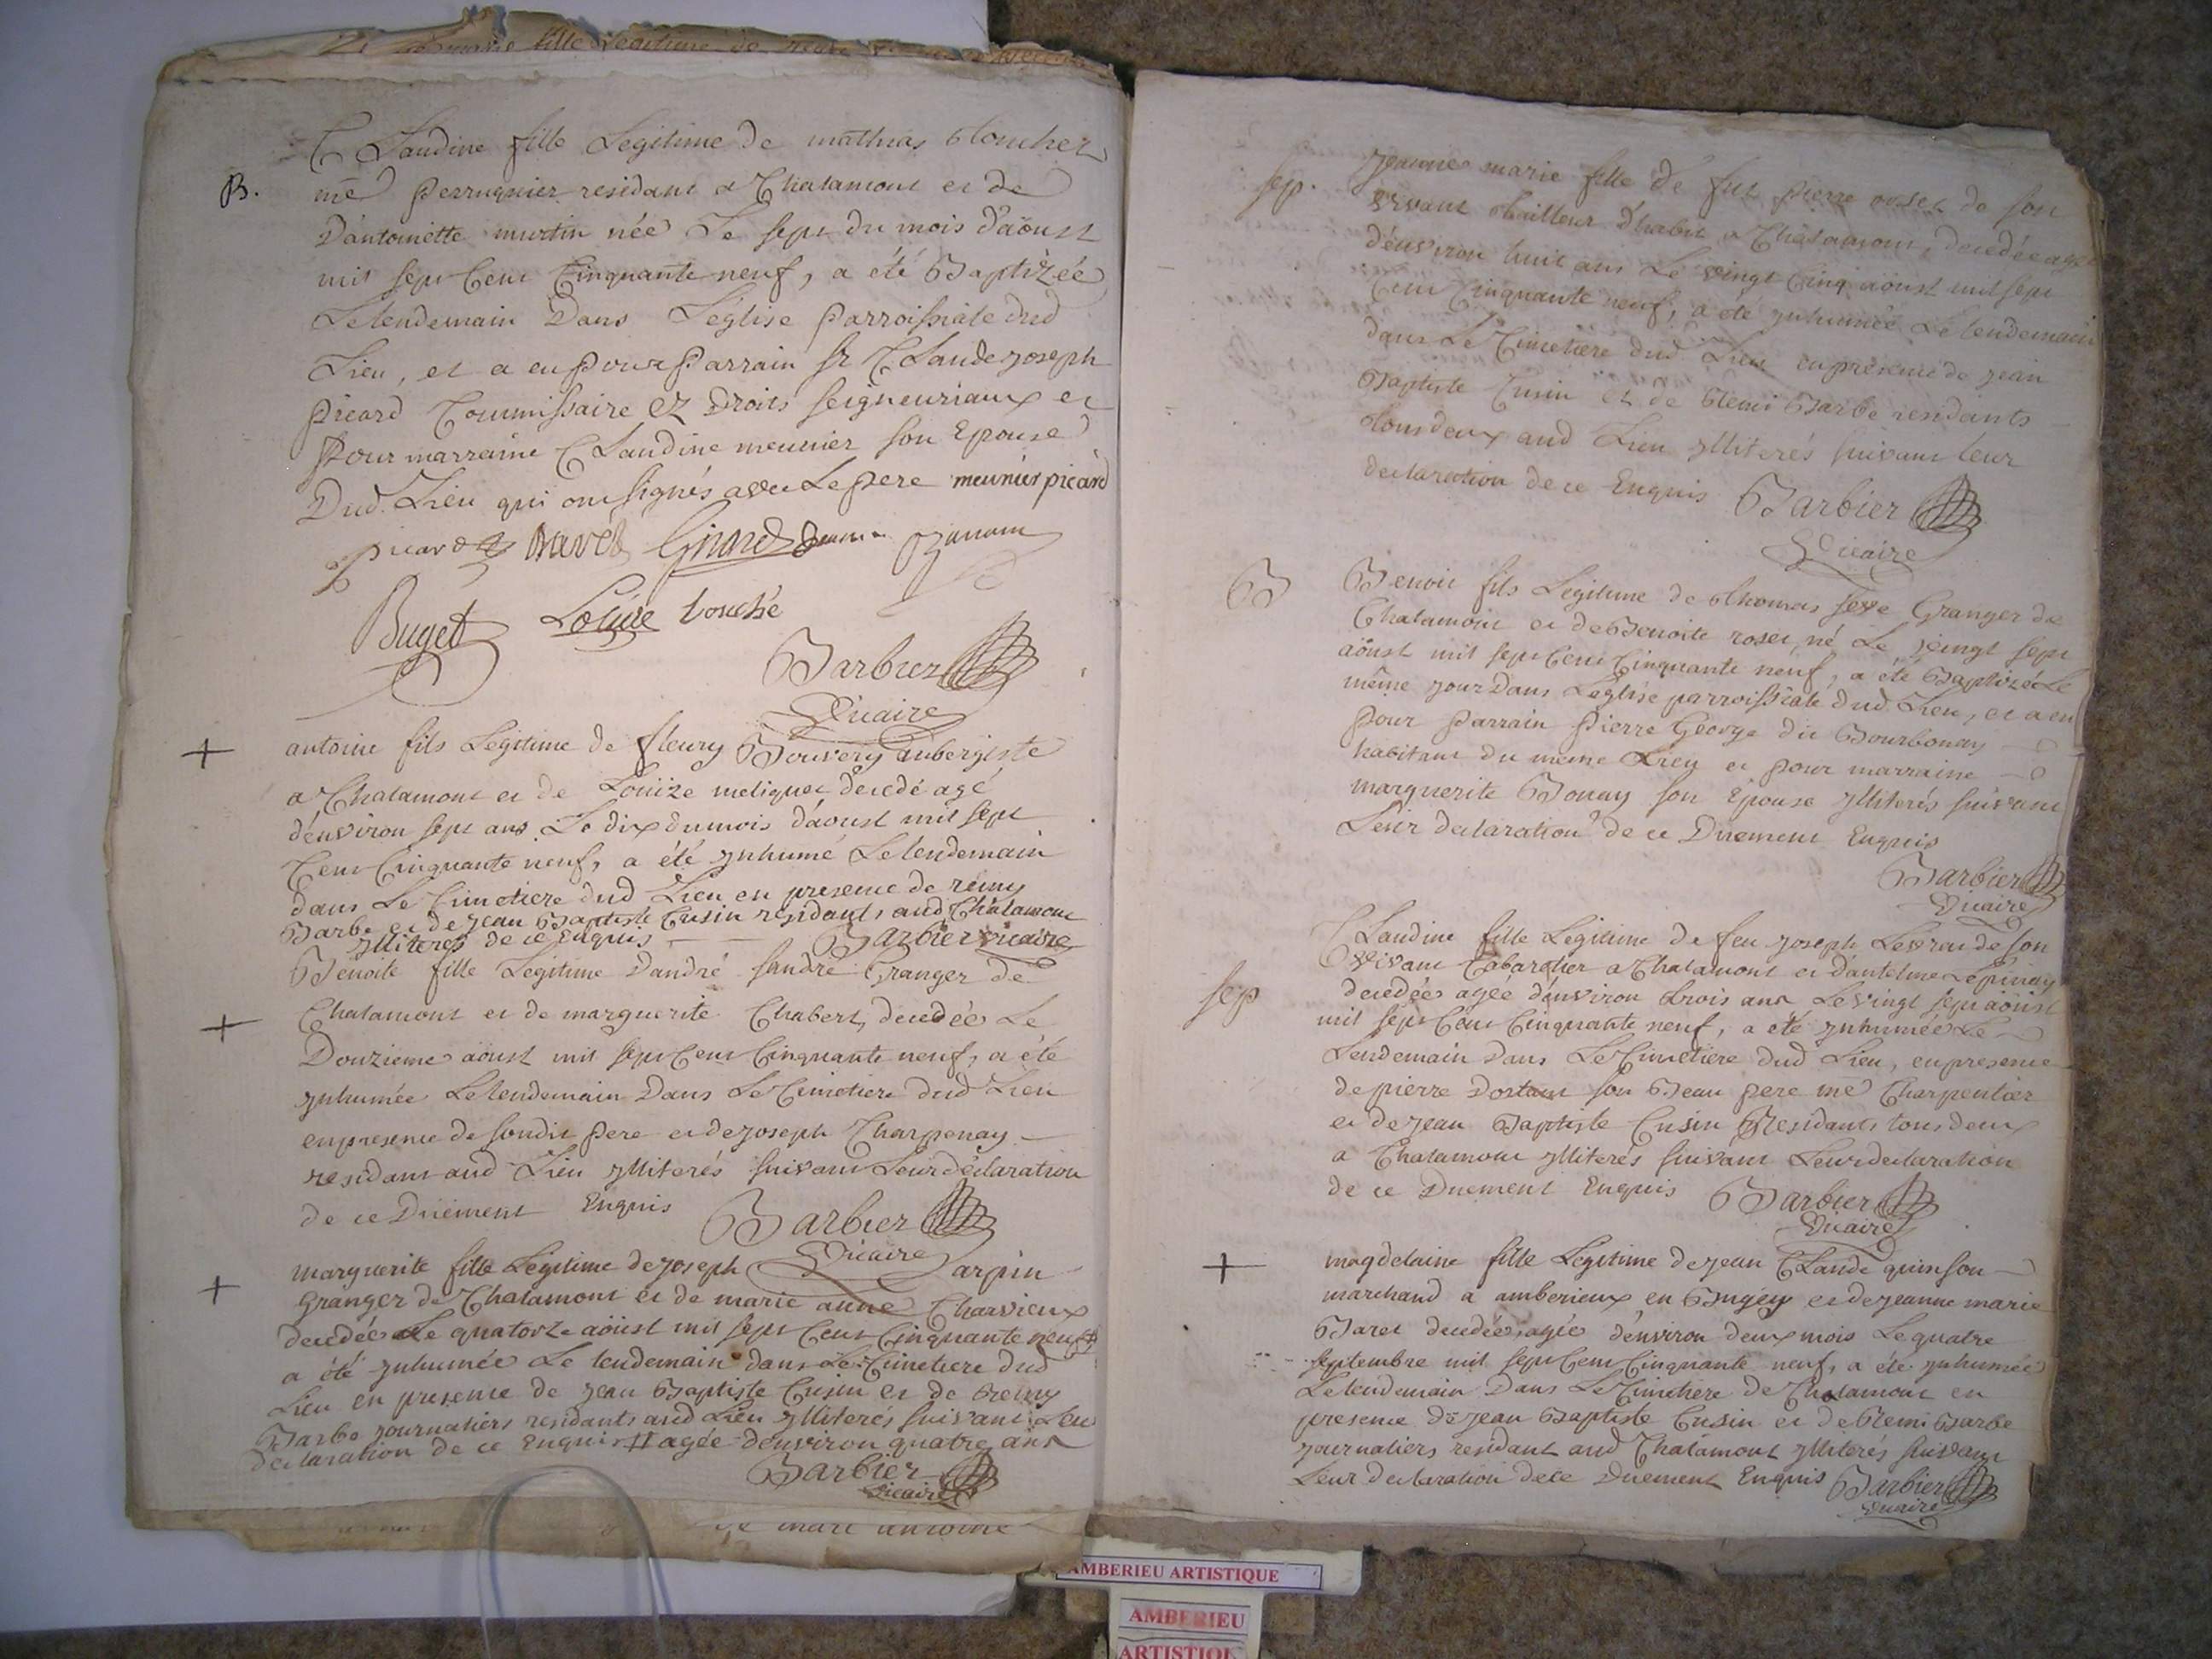 Claudine fille Legitime de mathias toucher
B.
me perruquier residant a Chalamont et de
D'antoinette murtin née Le sept du mois d'aöust
mil sept Cent Cinquante neuf, a été Baptizée
Le lendemain Dans L'eglise parroissiale dud
Lieu, et a eu pour parrain sr Claude joseph
picard Commissaire ez Droits seigneuriaux et
pour marraine Claudine meunier son Epouse
Dud. Lieu qui ont signés avec Le pere meunier picard
picard
Buget Louise touché
Barbier
Vicaire
+
antoine fils Legitime de fleury Bouvery aubergiste
a Chalamont et de Louize meliquet decedé agé
d'environ sept ans Le dix du mois d'aoust mil sept
Cent Cinquante neuf, a été ynhumé Le lendemain
dans Le Cimetiere dud Lieu en presence de remy
Barbe et de jean Baptiste Cusin residants aud Chalamont
ylliterés de ce Enquis Barbier vicaire
Benoite fille Legitime d'andré sandre Granger de
+
Chalamont et de marguerite Chabert, decedée Le
Douzieme aöust mil sept Cent Cinquante neuf, a été
ynhumée Le lendemain Dans Le Cimetiere dud Lieu
en presence de sondit pere et de joseph Charpenay
residant aud Lieu ylliterés suivant Leur déclaration
de ce Düement Enquis Barbier
Vicaire
marguerite fille Legitime de joseph arpin
+
Granger de Chalamont et de marie anne Charvieux
decedée Le quatorze aöust mil sept Cent Cinquante neuf #
a été ynhumée Le lendemain dans Le Cimetiere dud
Lieu en presence de jean Baptiste Cusin et de Remy
Barbe journaliers residants aud Lieu ylliterés suivant Leur
declaration de ce Enquis # agée d'environ quatre ans
Barbier
Vicaire
marc antoine
sep.
jeanne marie fille de fut pierre roset de son
vivant tailleur d'habit a Chalamont, decedée agée
d'environ huit ans Le vingt Cinq aöust mil sept
Cent Cinquante neuf, a été ynhumée Le lendemain
dans Le Cimetiere dud Lieu en presence de jean
Baptiste Cusin et de Remi Barbe residants
tous deux aud Lieu ylliterés suivant leur
declaration de ce Enquis Barbier
Vicaire
B
Benoit fils Legitime de thomas seve Granger de
Chalamont et de Benoite roset, né Le vingt sept
aöust mil sept Cent Cinquante neuf, a été Baptizé Le
même jour Dans L'eglise parroissiale dud Lieu, et a eu
pour parrain pierre George dit Bourbonay
habitant du même Lieu et pour marraine
marguerite Bonay son Epouse ylliterés suivant
Leur declaration de ce Duement Enquis
Barbier
Vicaire
Claudine fille Legitime de feu joseph Levrat de son
vivant Cabaretier a Chalamont et d'antelme Lepinay
sep
decedée agée d'environ trois ans Le vingt sept aöust
mil sept Cent Cinquante neuf, a été ynhumée Le
Lendemain Dans Le Cimetiere dud Lieu, en presence
de pierre son Beau pere me Charpentier
et de jean Baptiste Cusin Residants tous deux
a Chalamont ylliterés suivant Leur declaration
de ce Duement Enquis Barbier
Vicaire
+
magdelaine fille Legitime de jean Claude quinson
marchand a amberieux en Bugey et de jeanne marie
Baret decedée, agée d'environ deux mois Le quatre
septembre mil sept Cent Cinquante neuf, a été ynhumée
Le lendemain Dans Le Cimetiere de Chalamont en
presence de jean Baptiste Cusin et de Remi Barbe
journaliers residant aud Chalamont ylliterés suivant
Leur declaration de ce Duement Enquis Barbier
Vicaire
AMBERIEU ARTISTIQUE
AMBERIEU
ARTISTIQU